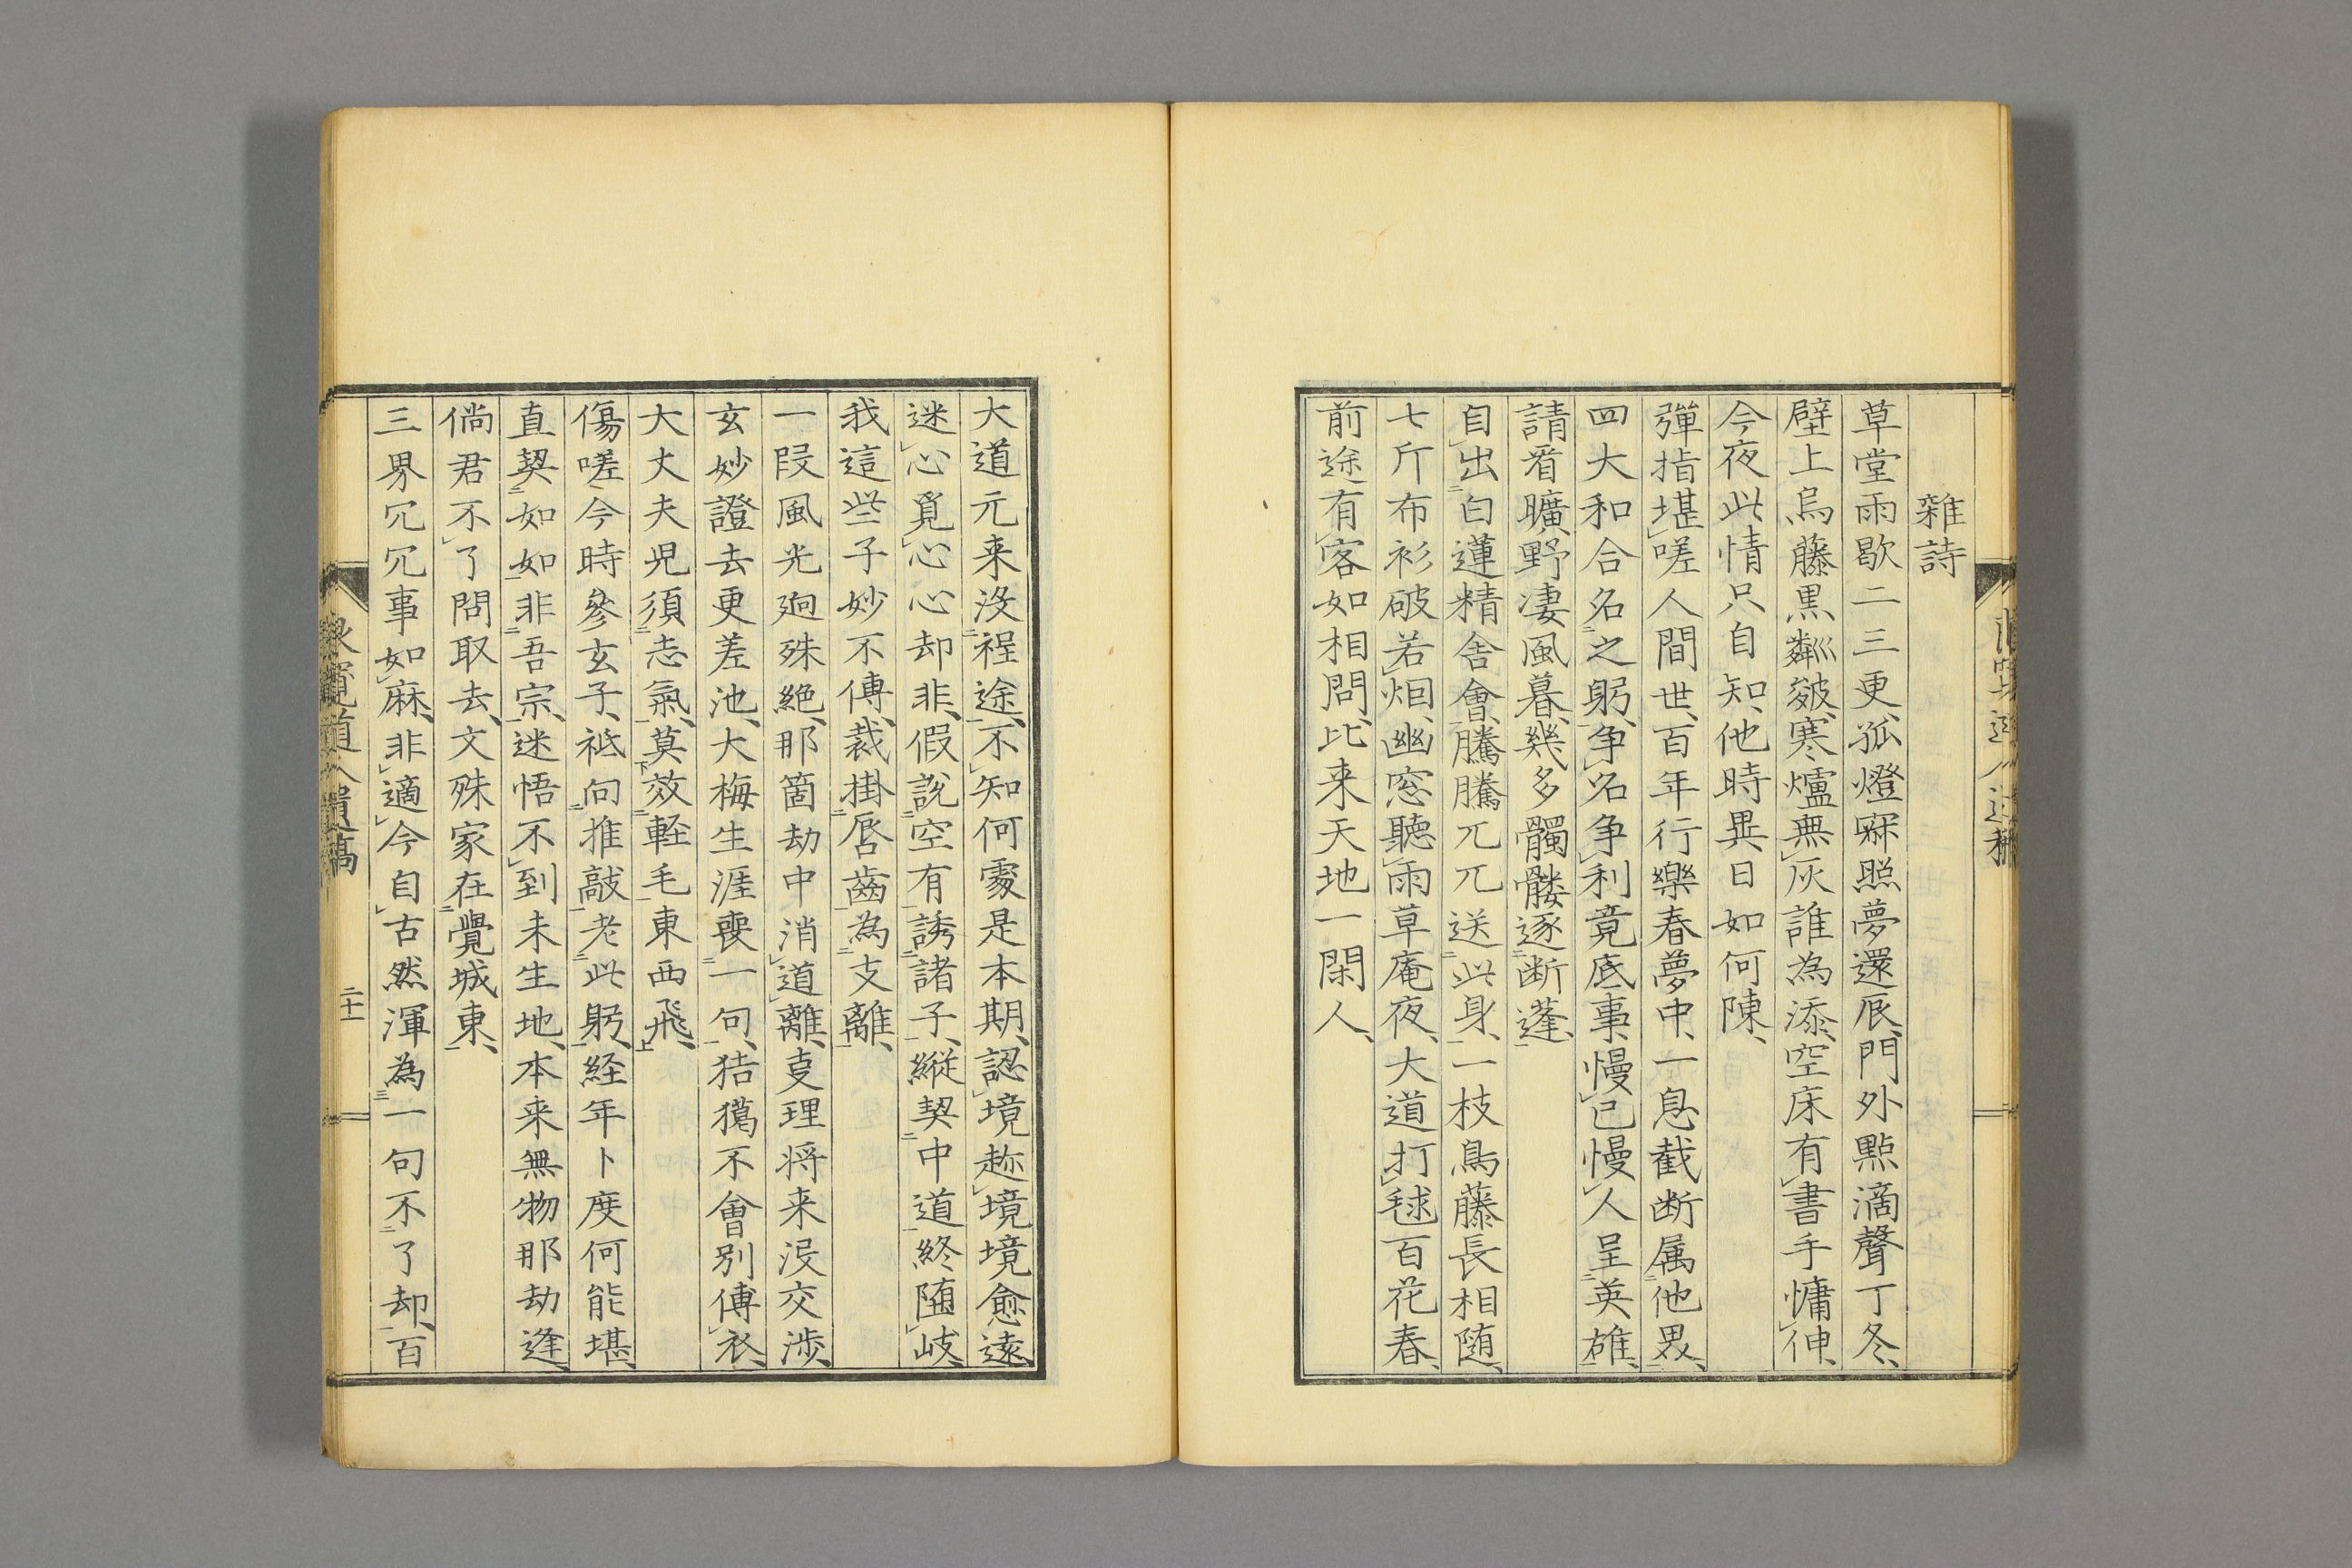 雜詩
草堂雨歇二三更、孤燈寐照夢還辰、門外點滴聲丁冬、
壁上烏藤黒粼皴、寒爐無灰誰為添、空床有書手慵伸、
今夜此情只自知、他時異日如何陳、
彈指堪嗟人間世、百年行樂春夢中、一息截断属他界、
四大和合名之躬、争名争利竟底事、慢己慢人呈英雄、
請看曠野凄風暮、幾多髑髏逐断蓬、
自出白蓮精舎會、騰騰兀兀送此身、一枝烏藤長相随、
七斤布衫破若烟、幽窓聽雨草庵夜、大道打毬百花春、
前途有客如相問、比来天地一閑人、
大道元来没程途、不知何處是本期、認境趂境境愈遠、
迷心覓心心却非、假説空有誘諸子、縦契中道終随岐、
我這些子妙不傳、裁掛唇齒為支離、
一段風光逈殊絶、那箇劫中消道離、玄理将来没交渉、
玄妙證去更差池、大梅生涯喪一句、狤獦不會別傳衣、
大丈夫児須志氣、莫效軽毛東西飛、
傷嗟今時參玄子、祗向推敲老此躬、経年卜度何能堪、
直契如如非吾宗、迷悟不到未生地、本来無物那劫逢、
倘君不了問取去、文殊家在覺城東、
三界冗冗事如麻、非適今自古然渾為一句不了却、百
二十一
道人遺稿